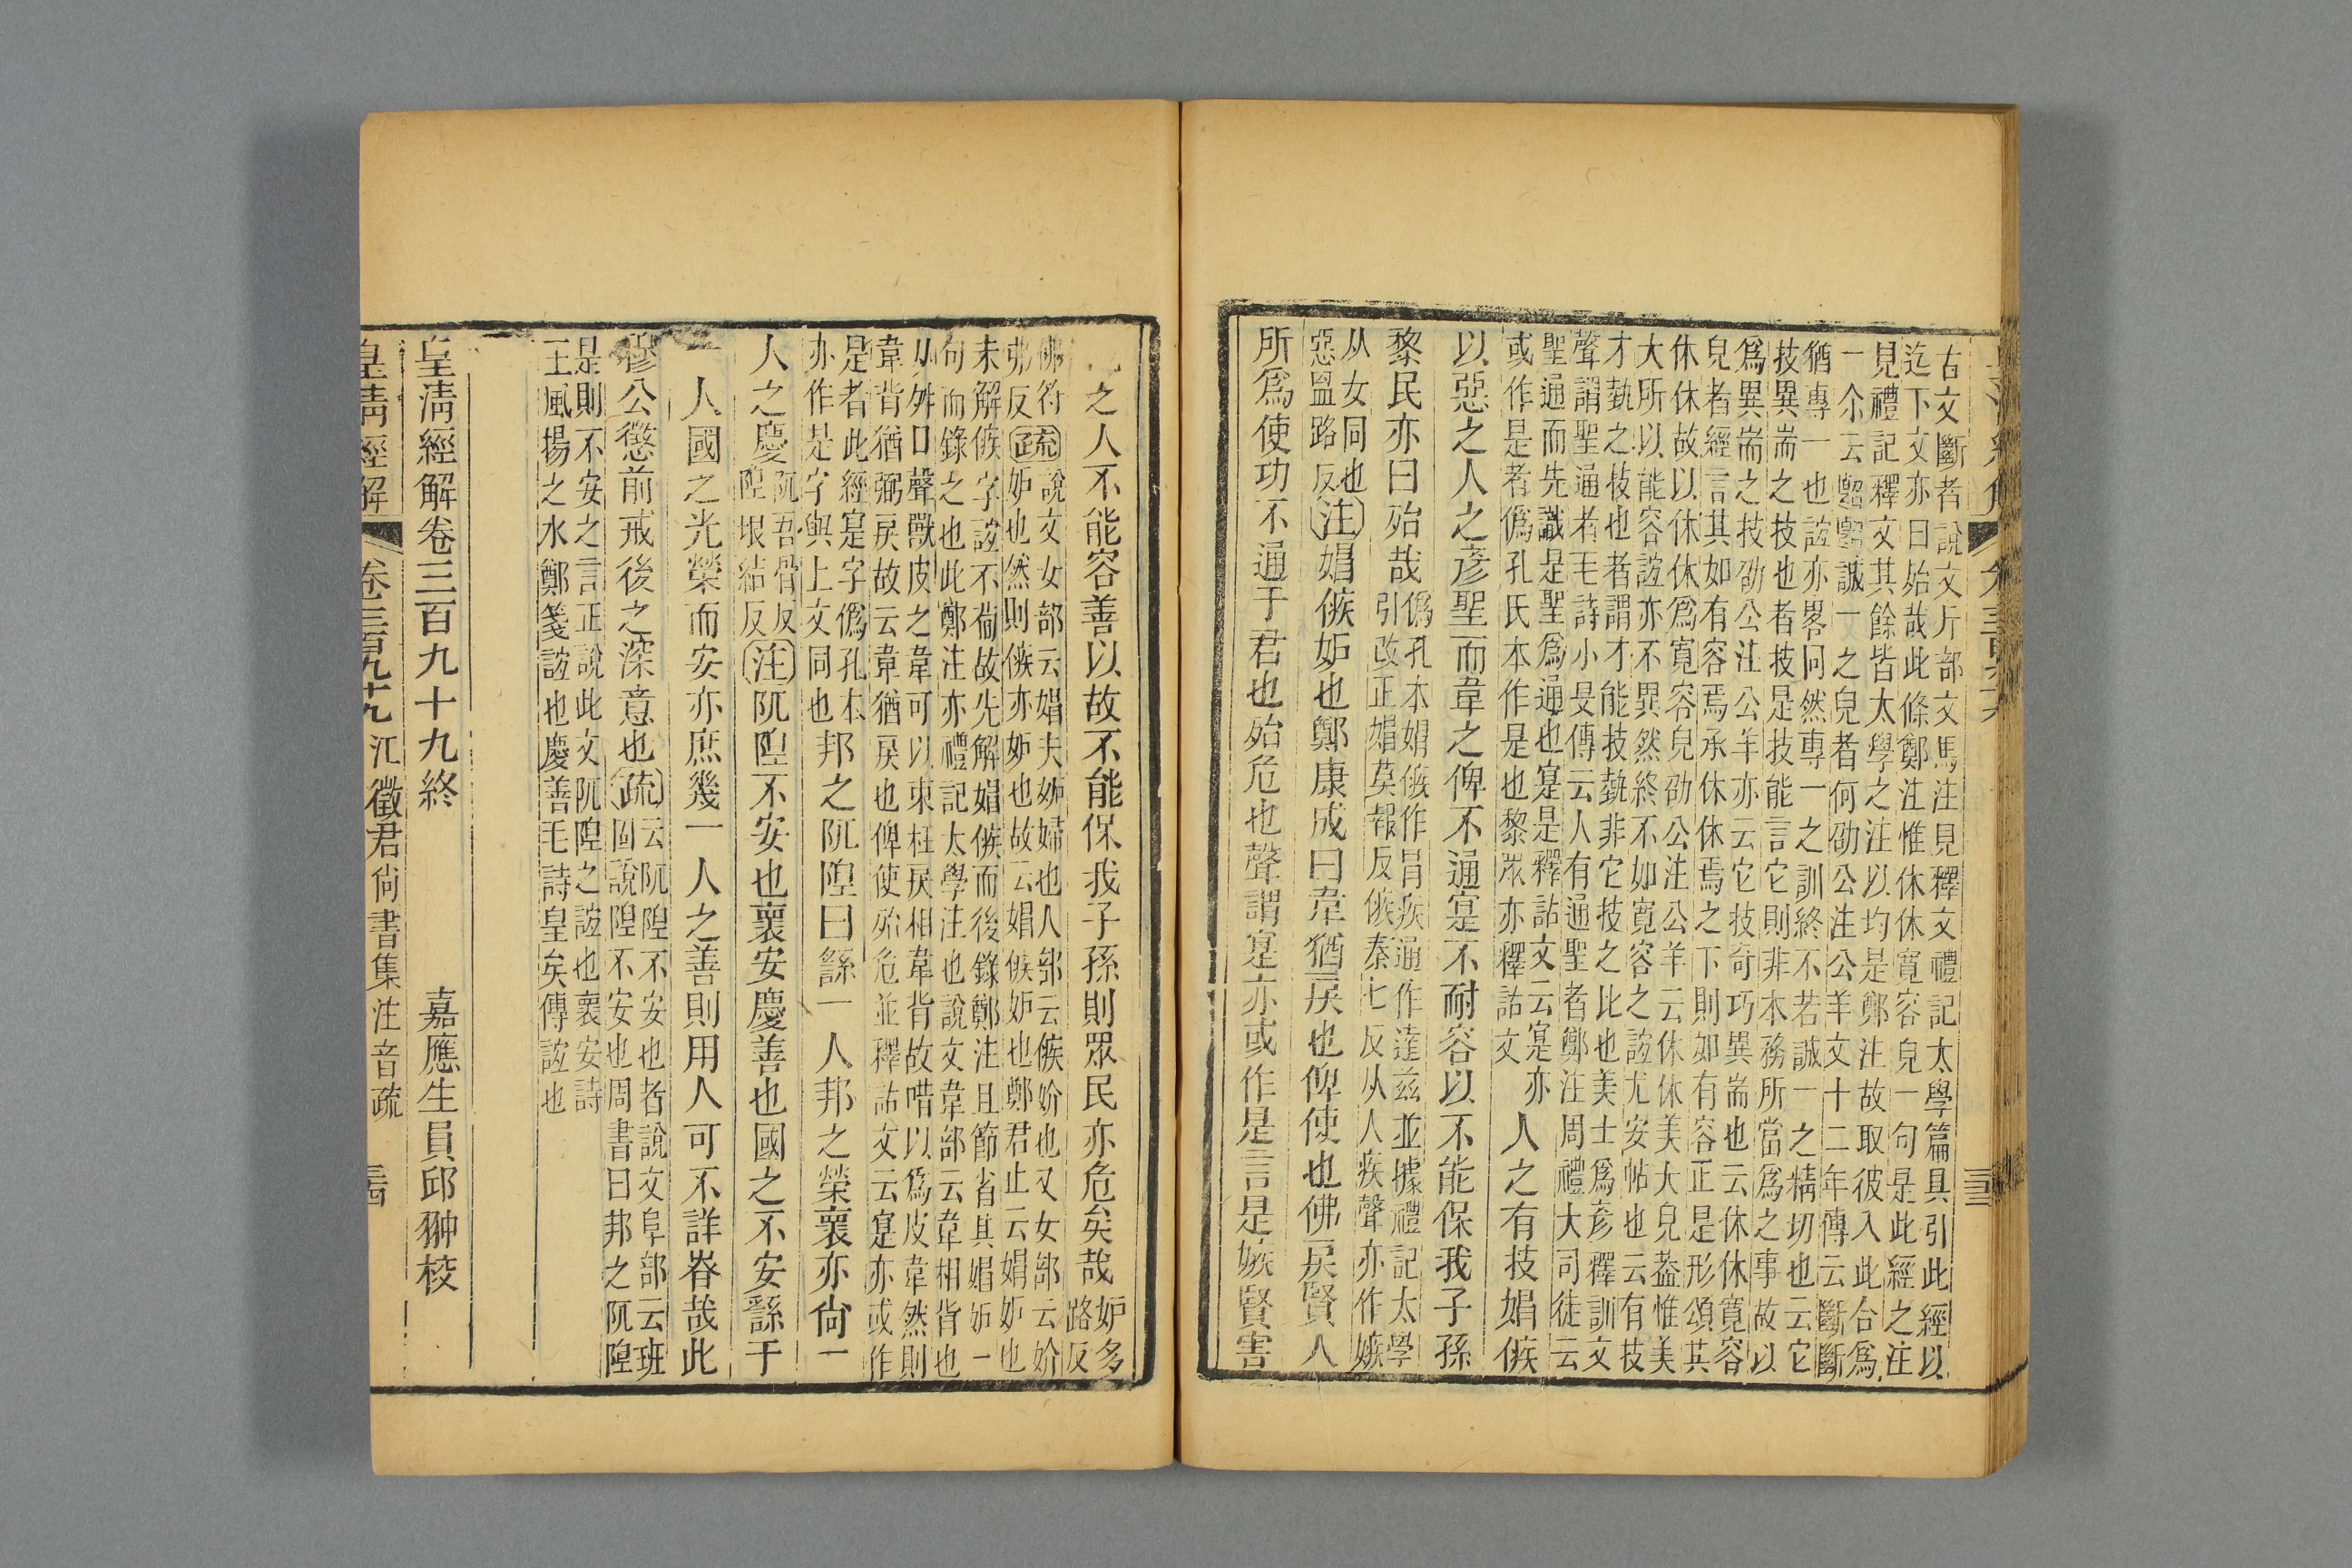 古文斷者說文斤部文馬注見釋文禮記太學篇具引此經以
迄下文亦曰殆哉此條鄭注惟休休寬容皃一句是此經之注
見禮記釋文其餘皆太學之注以均是鄭注故取彼入此合爲
一尒云𢇍𢇍誠一之皃者何劭公注公羊文十二年傳云斷斷
猶專一也誼亦畧同然專一之訓終不若誠一之精切也云它
技異耑之技也者技是技能言它則非本務所當爲之事故以
爲異耑之技劭公注公羊亦云它技奇巧異耑也云休休寬容
皃者經言其如有容焉承休休焉之下則如有容正是形頌其
休休故以休休爲寬容皃劭公注公羊云休休美大皃葢惟美
大所以能容誼亦不異然終不如寬容之誼尤安帖也云有技
才埶之技也者謂才能技埶非它技之比也美士爲彥釋訓文
聲謂聖通者毛詩小旻傳云人有通聖者鄭注周禮大司徒云
聖通而先識是聖爲通也寔是釋詁文云寔亦
或作是者僞孔氏本作是也黎眾亦釋詁文
人之有技娼㑵
以惡之人之彥聖而韋之俾不通寔不耐容以不能保我子孫
黎民亦曰殆哉
僞孔本娼㑵作冒疾通作達兹並據禮記太學
引改正娼莫報反㑵秦七反从人疾聲亦作嫉
从女同也
惡䀈路反
注娼㑵妒也鄭康成曰韋猶戾也俾使也佛戾賢人
所爲使功不通于君也殆危也聲謂寔亦或作是言是嫉賢害
之人不能容善以故不能保我子孫則眾民亦危矣哉
妒多
路反
佛符
弗反
疏
說文女部云娼夫妒婦也人部云㑵妎也又女部云妎
妒也然則㑵亦妒也故云娼㑵妒也鄭君止云娼妒也
未解㑵字誼不葡故先解娼㑵而後錄鄭注且節省其娼妒一
句而錄之也此鄭注亦禮記太學注也說文韋部云韋相背也
从舛口聲獸皮之韋可以束枉戾相韋背故唶以爲皮韋然則
韋背猶弼戾故云韋猶戾也俾使殆危並釋詁文云寔亦或作
是者此經寔字僞孔本
亦作是字與上文同也
邦之阢隉曰繇一人邦之榮褱亦尙一
人之慶
阢吾骨反
隉垠結反
注阢隉不安也褱安慶善也國之不安繇于
一人國之光榮而安亦庶幾一人之善則用人可不詳眘哉此
穆公懲前戒後之深意也
疏
云阢隉不安也者說文阜部云班
固說隉不安也周書曰邦之阢隉
是則不安之言正說此文阢隉之誼也褱安詩
王風揚之水鄭箋誼也慶善毛詩皇矣傳誼也
皇淸經解卷三百九十九終
嘉應生員邱翀校
皇淸經解
卷三百九十九 江徵君尙書集注音疏